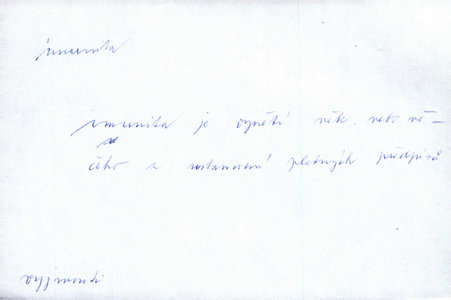 imunita
imunita je vynětí něk. nebo ně-
čeho z ustanovení platných předpisů